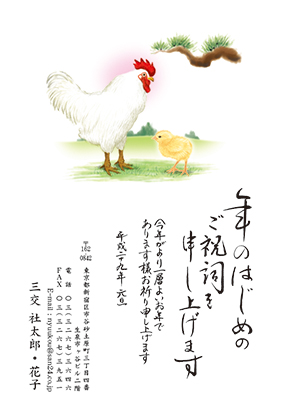 年のはじめの
ご祝詞を
申し上げます
今年がより一層よいお年で
あります様お祈り申し上げます
平成二十九年 元旦
〒
162
0842
東京都新宿区市谷砂土原町三丁目四番
生泉市ヶ谷ビル二階
電話 〇三(三二六七)三六四六
FAX 〇三(三二六七)三九五一
E-mail : nyukou@san24.co.jp
三交 社太郎・花子